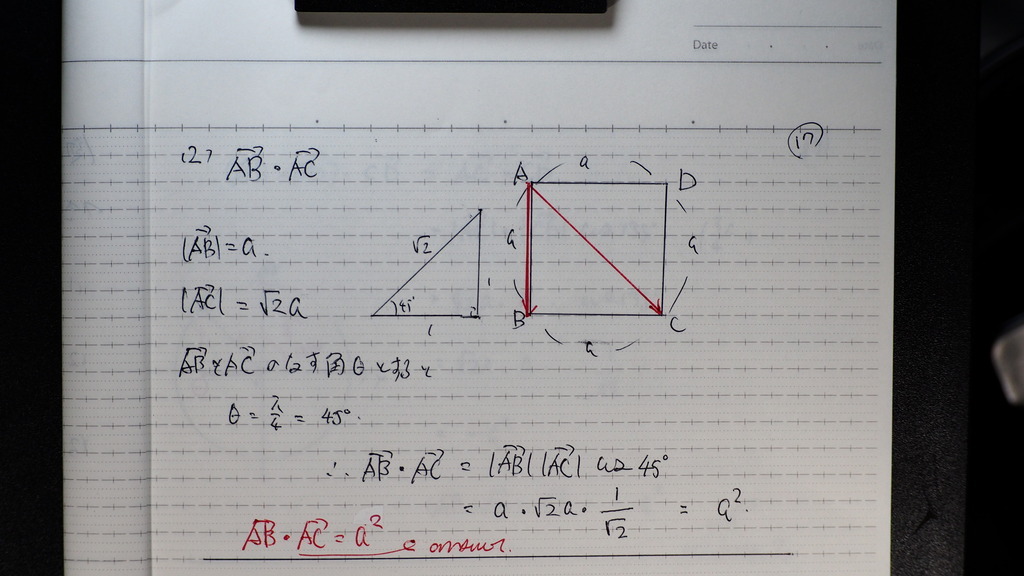 Date
(17)
(2) $\overrightarrow{AB} \cdot \overrightarrow{AC}$
A a D
a a
B a C
√2
45°
1
1
$|\overrightarrow{AB}| = a.$
$|\overrightarrow{AC}| = \sqrt{2}a$
$\overrightarrow{AB}$と$\overrightarrow{AC}$のなす角θとすると
$\theta = \frac{\pi}{4} = 45°.$
$\therefore \overrightarrow{AB} \cdot \overrightarrow{AC} = |\overrightarrow{AB}| |\overrightarrow{AC}| \cos 45°$
$= a \cdot \sqrt{2}a \cdot \frac{1}{\sqrt{2}} = a^2.$
$\overrightarrow{AB} \cdot \overrightarrow{AC} = a^2$ answer.